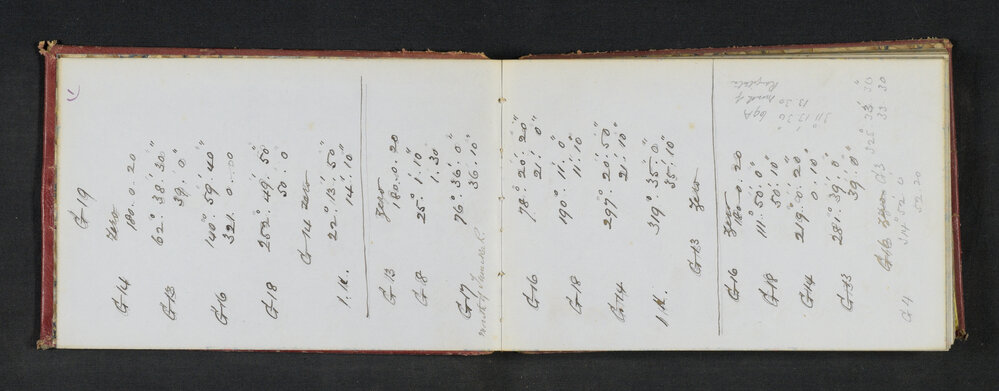 G 19
G 14 Zero 180. 0. 20
G 13 62° 38' 30"
39' 0"
G 16 140° 59' 40"
321. 0. 00
G 18 252° 49' 50"
50' 0
G 14 zero
I.K. 22° 13' 50"
14' 10"
G 13 Zero 180. 0. 20
G 8 25° 1' 10"
1. 30
G 17 76° 36' 0"
36' 10"
G 16 78° 20' 20"
21' 0"
G 18 190° 11' 0"
11' 10"
G 14 297° 20' 50"
21' 10"
I.K. 319° 35' 0"
35' 10"
G 13 Zero
G 16 Zero 180. 0. 20
G 18 111° 50' 0"
50' 10"
G 14 219° 0' 20"
0' 10"
G 33 281° 39' 0"
39' 0"
311° 13' 30"
13 30 mark of
G 16 Zero G 3 125° 33' 30"
33 30
G 4 314° 52' 0
52. 20